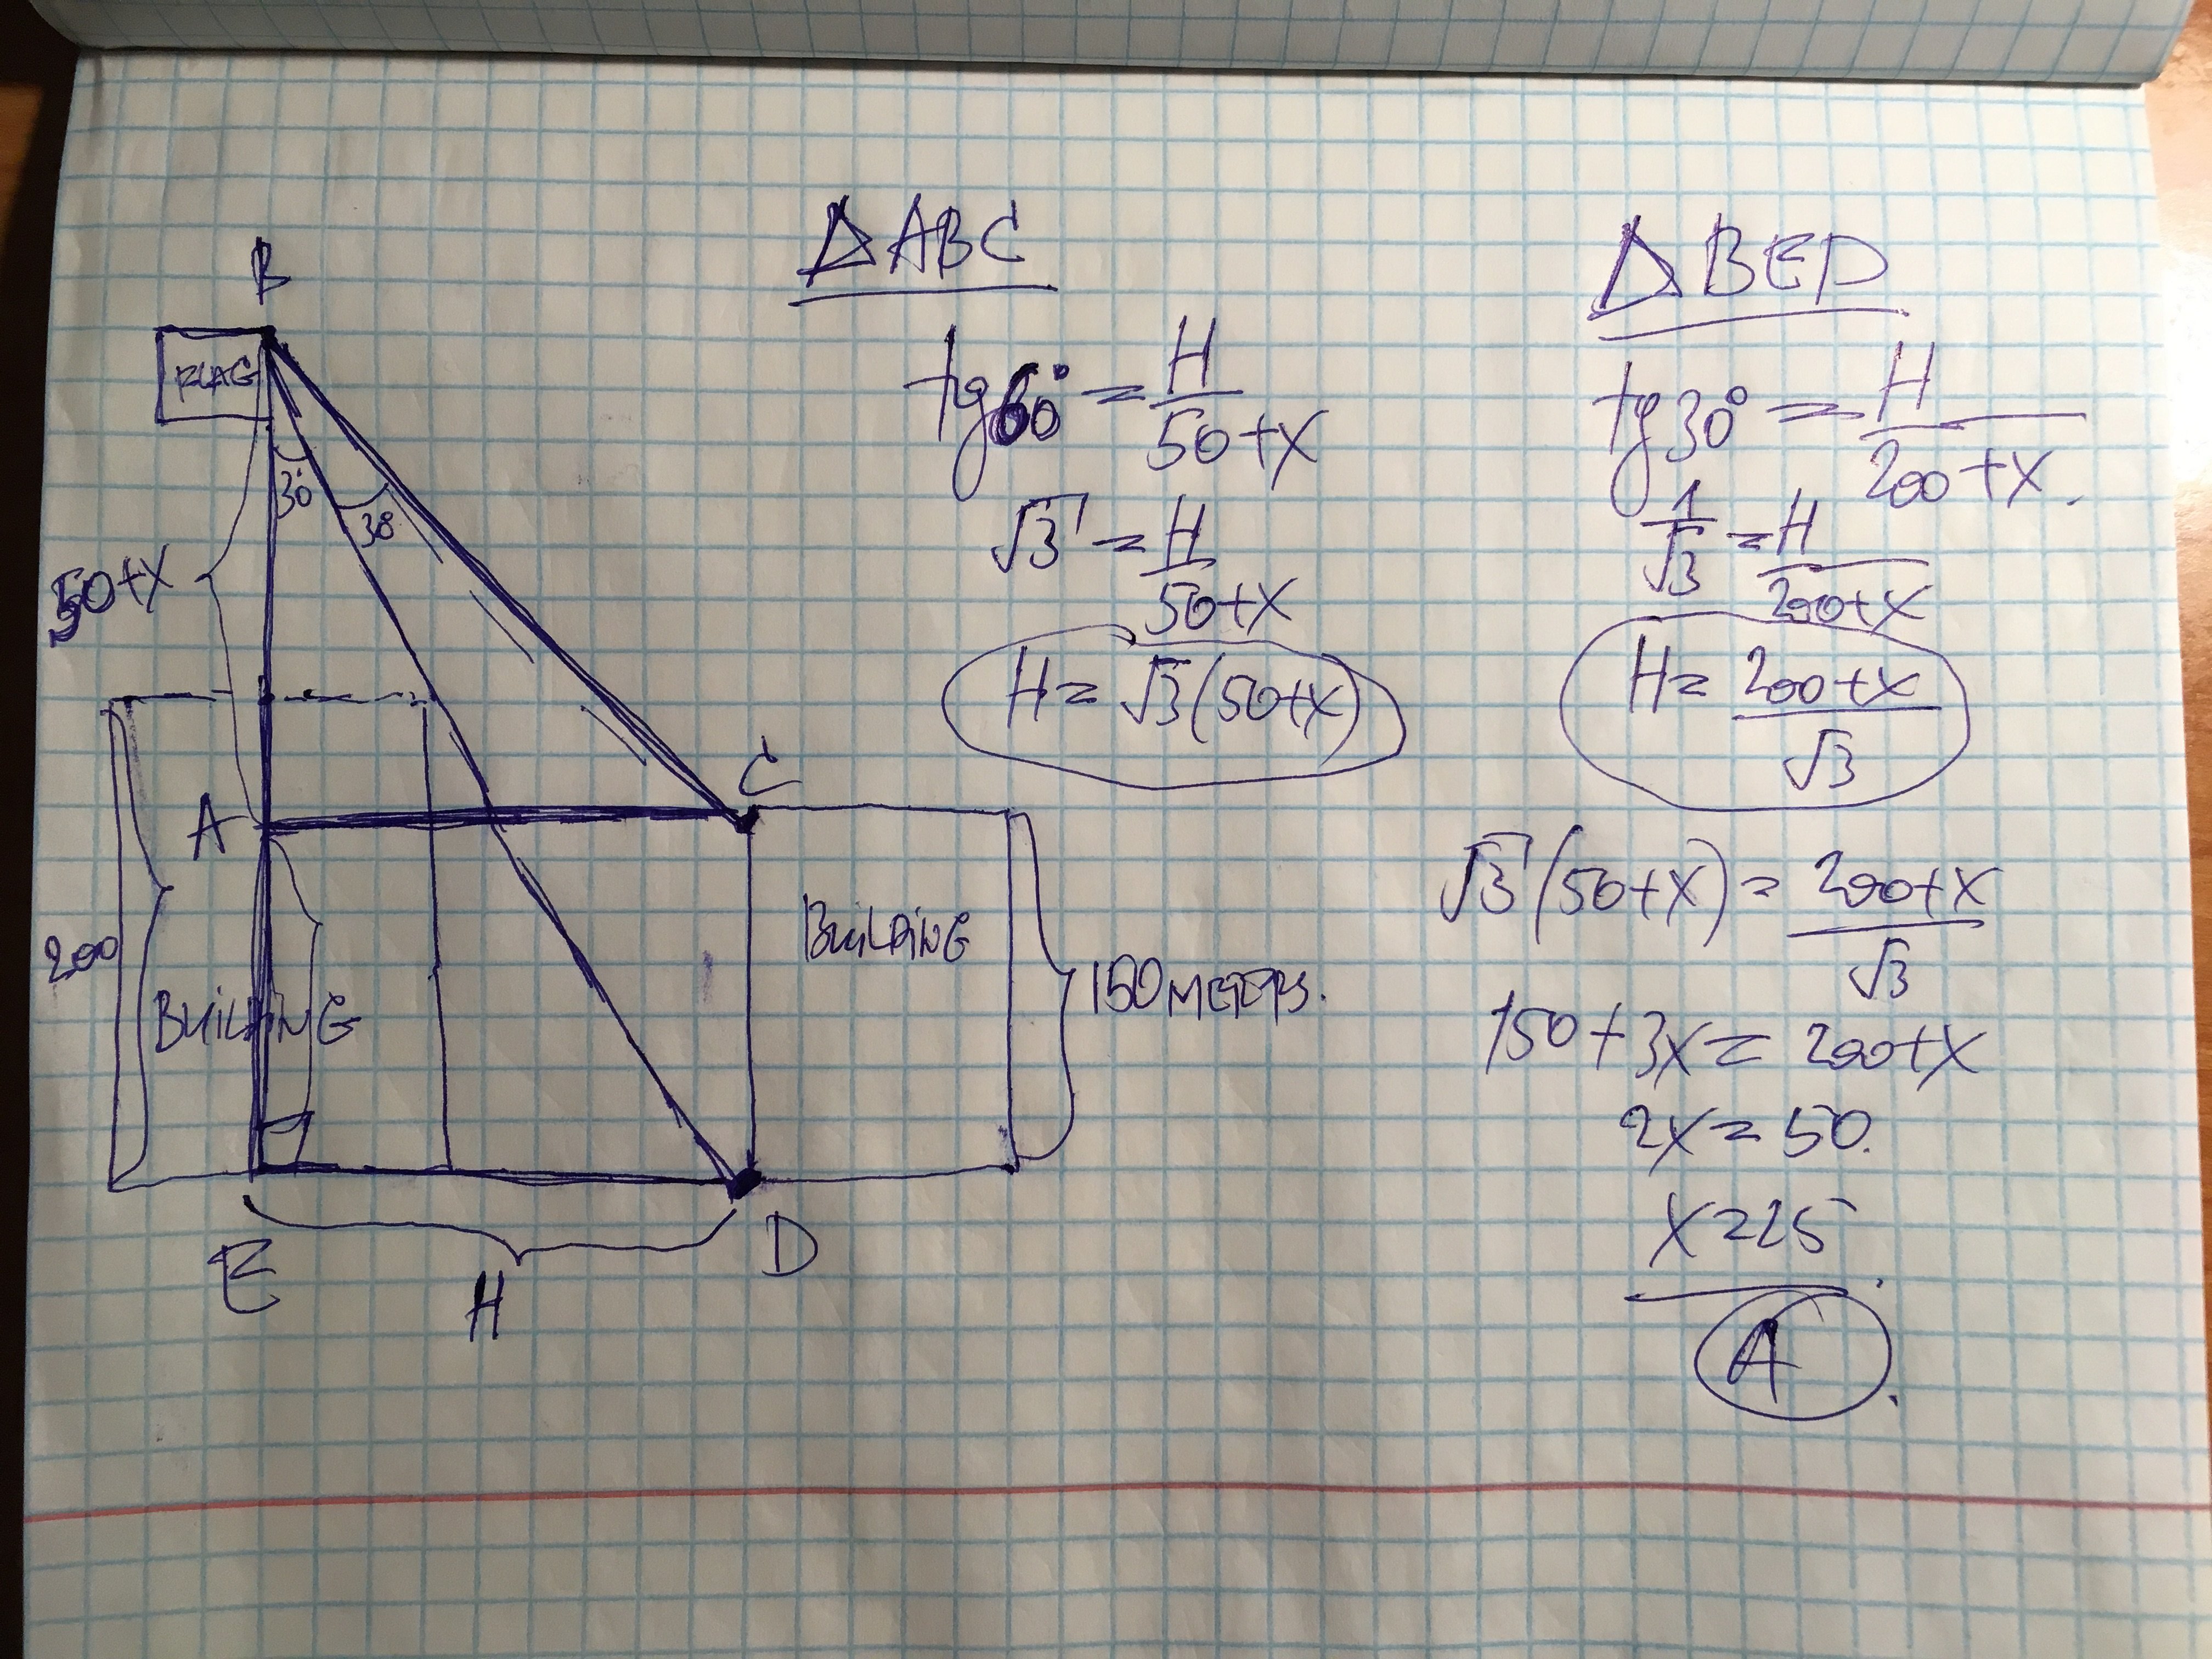 B
FLAG
30°
30°
50+X
A
C
200
BUILDING
BUILDING
150 METERS.
E
H
D
△ABC
tg60° = H/50+X
√3 = H/50+X
H = √3(50+X)
△BED
tg30° = H/200+X.
1/√3 = H/200+X
H = 200+X/√3
√3(50+X) = 200+X/√3
150+3X = 200+X
2X = 50.
X = 25
A.